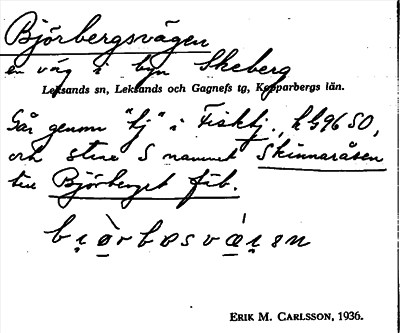 Björbergsvägen
en väg i byn Skeberg
Leksands sn, Leksands och Gagnefs tg, Kopparbergs län.
Går genom "tj" i Fisktj., h G96 SO,
och S namnet Skinnaråsen
till Björberget fäb.
ERIK M. CARLSSON, 1936.